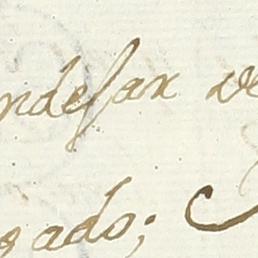 ndesar ve
gado;